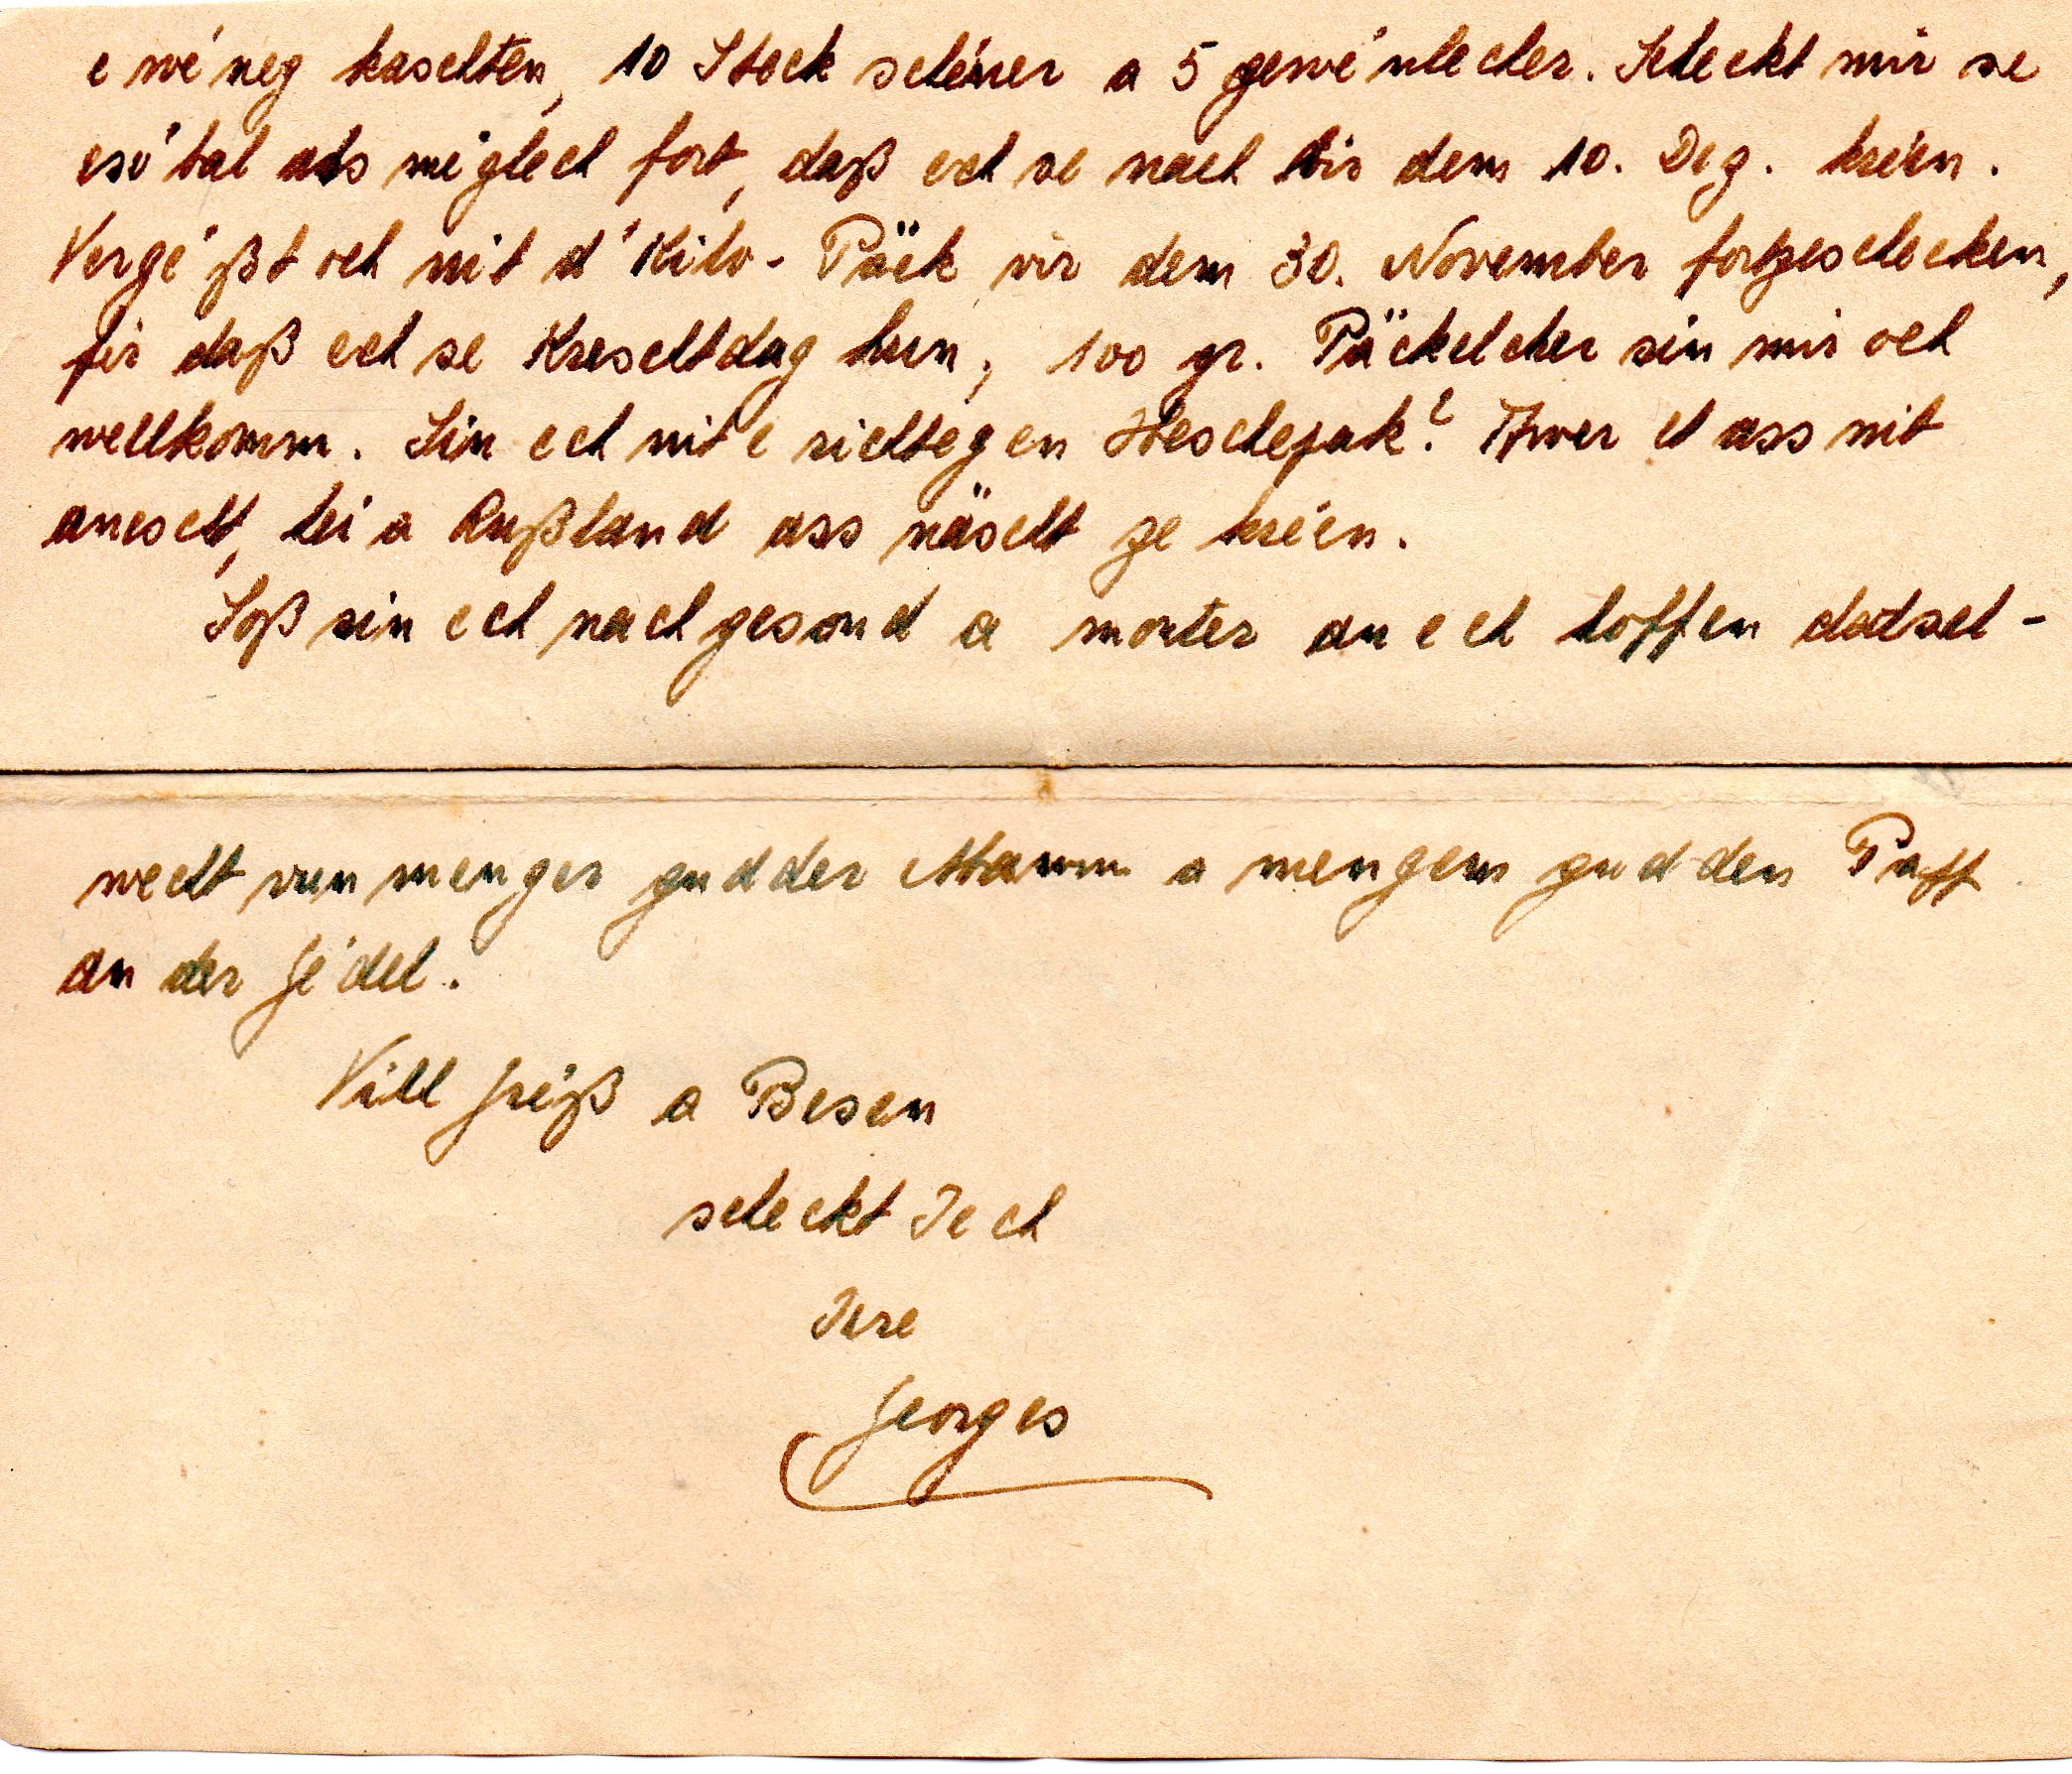 e wé'neg kaschten, 10 Steck schéiner a 5 gewé'nlecher. Scheckt mir se
esó'bal als mé'glech fort, daß ech se nach vir dem 10. Dez. kréien.
Vergé'ßt och nit d'Kilo-Päck vir dem 30. November fortzeschecken,
fir daß ech se Kreschtdag hun, 100 gr. Päckelcher sin mir och
wellkomm. Sin ech nit e richtegen Heeschejak? Awer et ass nit
anescht, hei a Rußland ass näscht ze kréien.
Soß sin ech nach gesond a monter an ech hoffen datsel-
wecht vun menger gudder Mamm a mengem gudden Papp
an der Gé'del.
Vill Gréiß a Besen
scheckt Iech
Iere
Georges